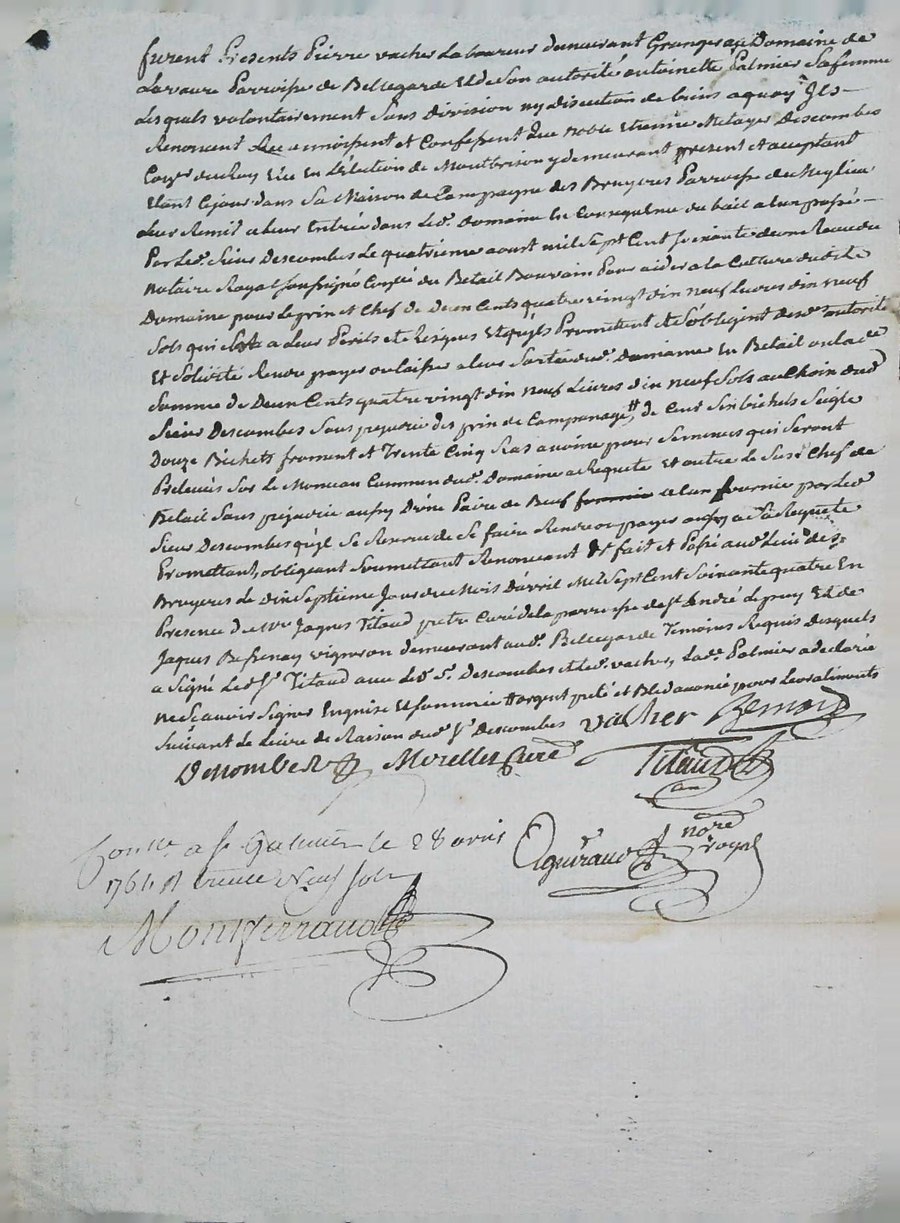 furent Présents Pierre vacher Laboureur demeurant Granger au Domaine de
Lavaure Parroisse de Bellegarde Et de Son autorité antoinette Palmier Sa femme
Lesquels volontairement Sans division ny discution de biens a quoy Ils
Renoncent Reconnoissent et Confessent que noble Etienne Metayer Descombes
Coner du Roy Elû En L'élection de Montbrison y demeurant present et acceptant
Etant Cejour dans Sa Maison de Campagne des Bruyeres Parroisse
Leur Remit a leur Entrée dans Led. Domaine En Consequence du bail a eux passé
Par Led. Sieur Descombes Le quatrieme aoust mil Sept Cent soixante deux Reçu du
notaire Royal soussigné du Betail Pour aider a la Culture dudit
Domaine pour Le prix et Chef de Deux Cents quatre vingt dix neuf Livres dix neuf
Sols qui a Leur Périls et Risques Et qu'ils Promettent et S'obligent de autorité
Et Solidité Rendre payer ou laisser a leur Sortie dud. Domaine En Betail ou lade
Somme de Deux Cents quatre vingt dix neuf Livres dix neuf Sols au Choix dud
Sieur Descombes Sans prejudice des prix de # de Cent Six bichets Seigle
Douze Bichets froment et Trente Cinq Ras avoine pour Semences qui Seront
Prelevés Sur Le Monceau Commun dud. Domaine a Requete Et outre Le Susd Chef de
Betail Sans prejudice aussy D'une Paire de Beuf a eux fournie par Led
Sieur Descombes qu'il Se Reserve de Se faire Rendre ou payer aussy a Sa Requete
Promettant, obligeant Soumettant Renonceant &c fait et Passé aud. Lieu des
Bruyeres Le Dix Septieme Jour du Mois D'avril Mil Sept Cent Soixante quatre En
Presence de Mre Jaques Titaud pretre Curé de la parroisse de St André Le puy Et de
Jaques vigneron demeurant aud. Bellegarde Temoins Requis desquels
a Signé Led Sr Titaud avec Led. Sr. Descombes et led. vacher, Lad. Palmier a declaré
ne Scavoir Signer Enquise Et Sommée # argent preté et Bled avancé pour Leurs aliments
Suivant Le Livre de Raison dud Sr Descombes vacher
Curé Titaud
nore
royal
Conllé a St Galmier le 28 avril
1764 R trente Neuf sols